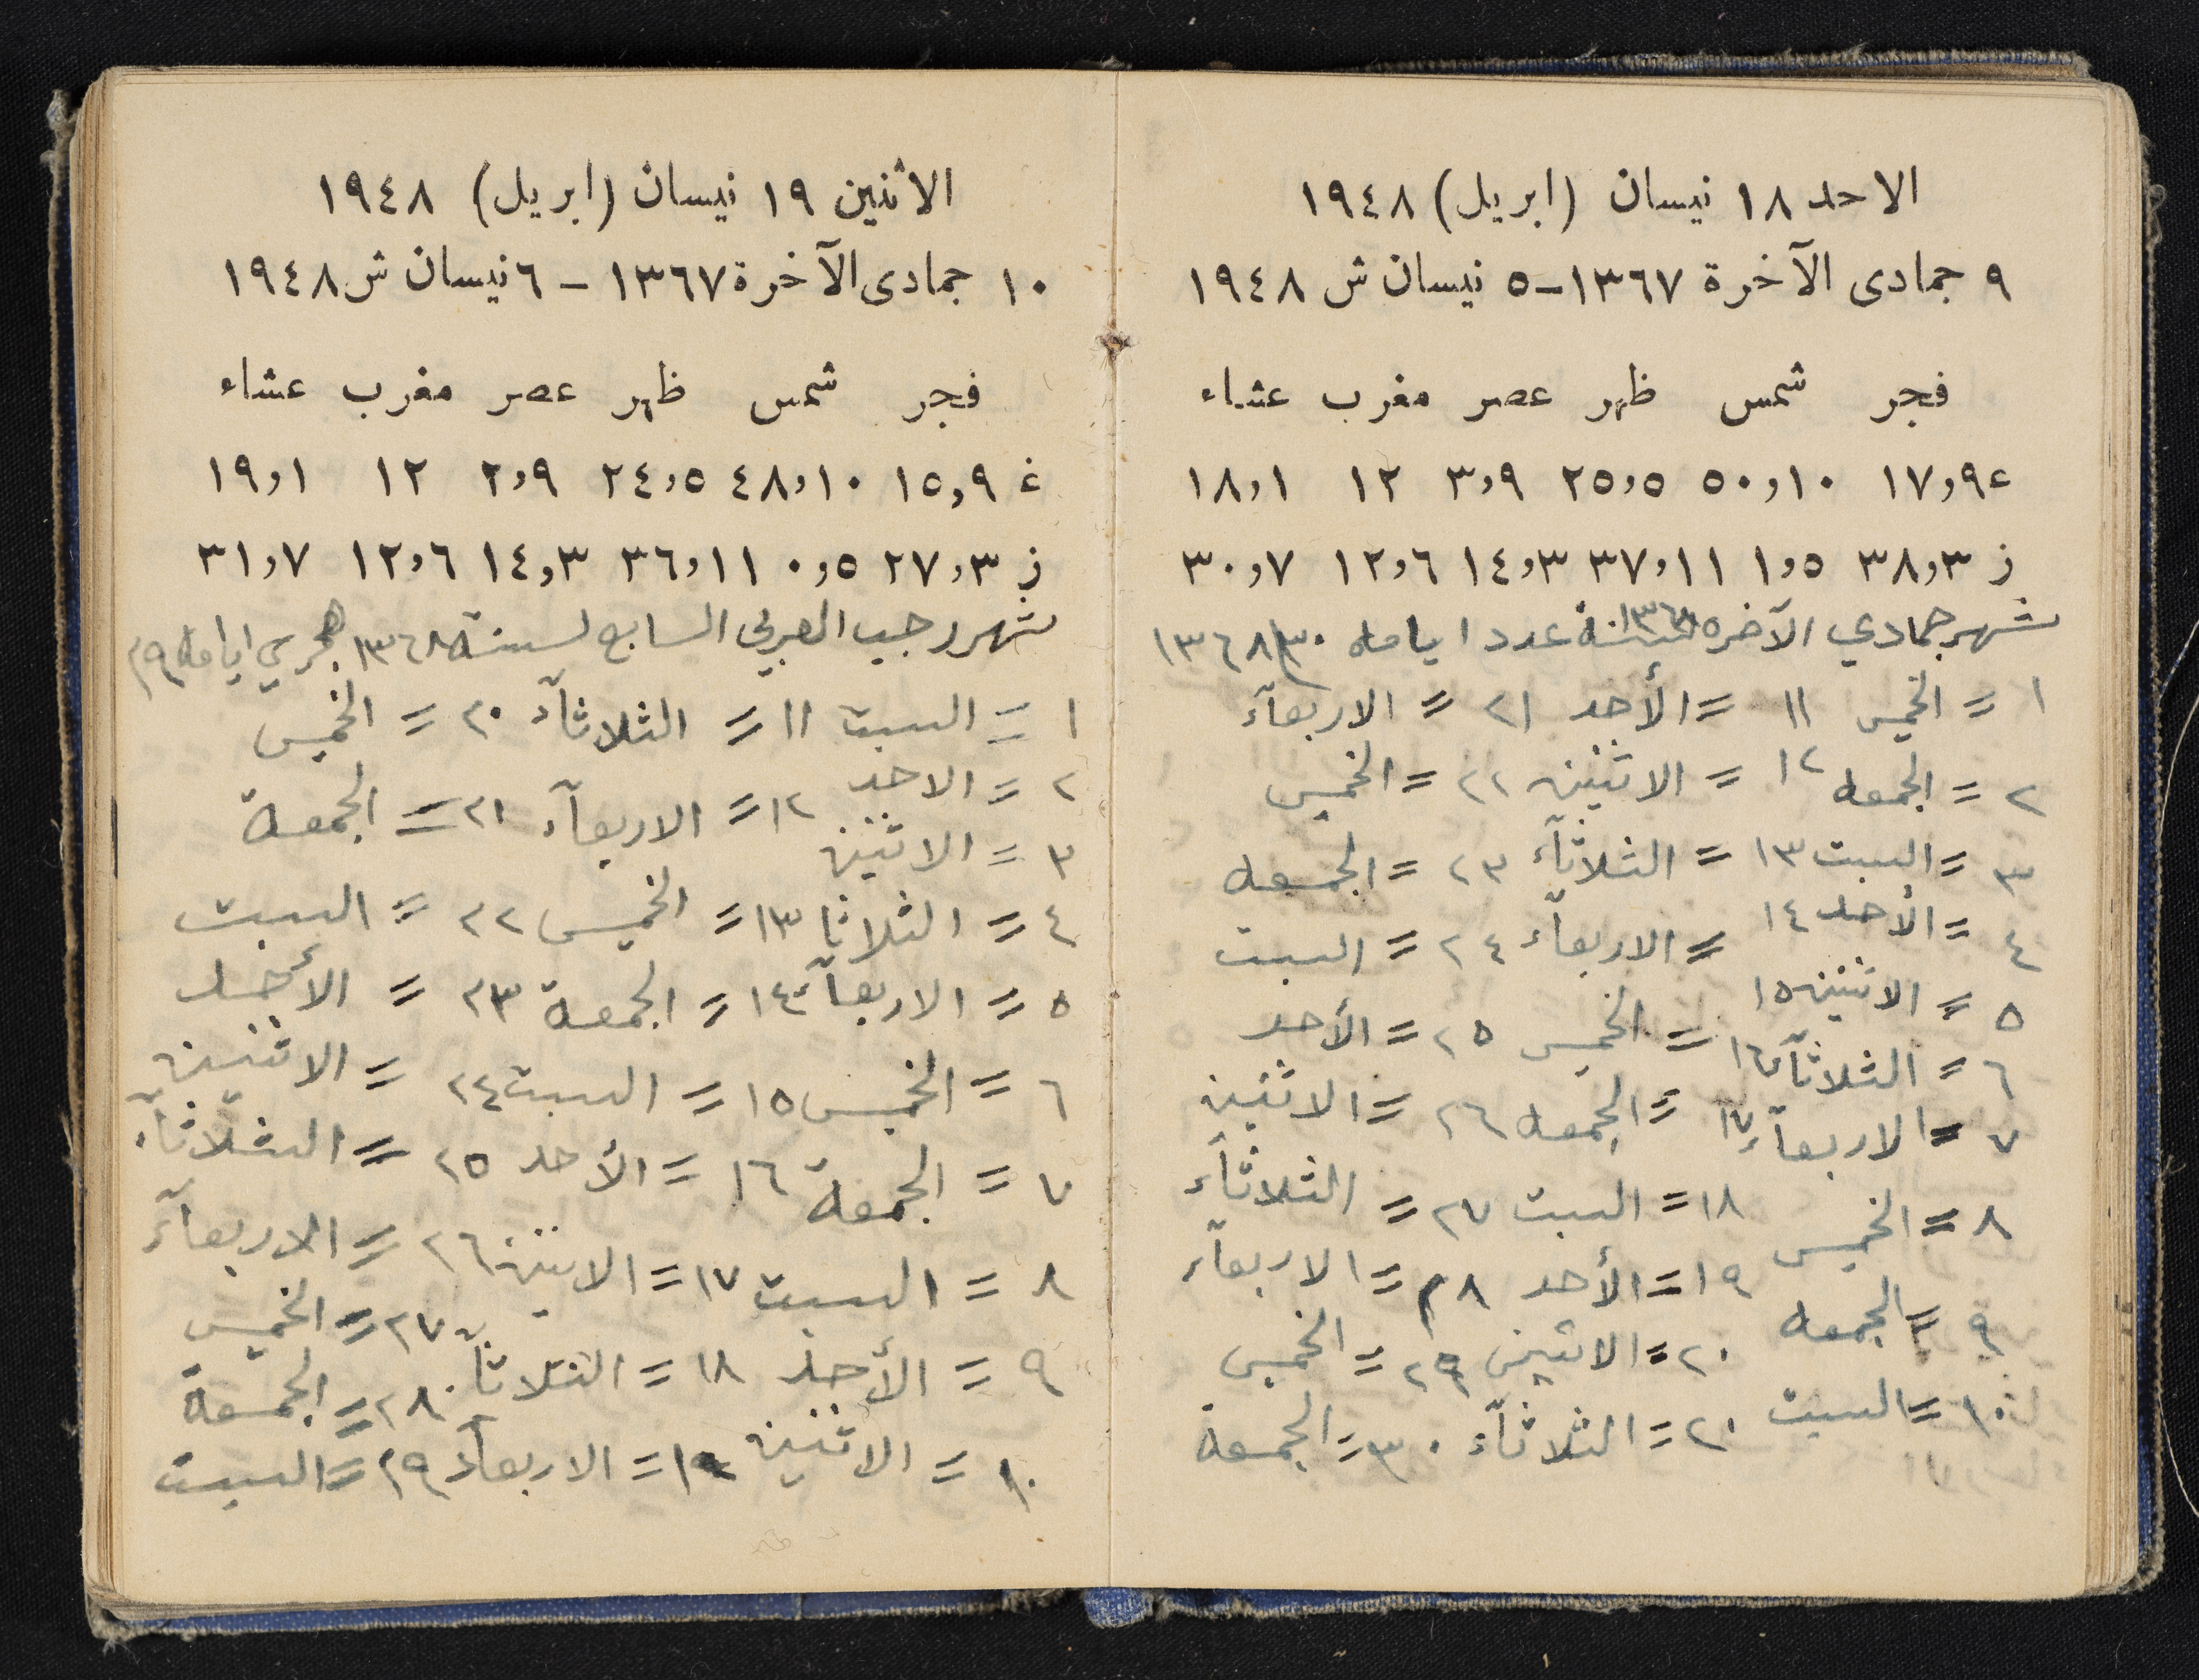 الاحد ١٨ نيسان (ابريل) ١٩٤٨
٩ جمادى الآخرة ١٣٦٧-٥ نيسان ش ١٩٤٨
فجر شمس ظهر عصر مغرب عشاء
غ ١٧,٩ ٥٠,١٠ ٢٥,٥ ٣,٩ ١٢ ١٨,١
ز ٣٨,٣ ١,٥ ٣٧,١١ ١٤,٣ ١٢,٦ ٣٠,٧
شهر جمادي الآخره سنة ١٣٦٨ عدد ايامه ٣٠ ١٣٦٨
١ = الخميس ١١ = الأحد ٢١ = الاربعآء
٢ = الجمعه ١٢ = الاثنين ٢٢ = الخميس
٣ = السبت ١٣ = الثلاثآء ٢٣ = الجمعه
٤ = الأحد ١٤ = الاربعآء ٢٤ = السبت
٥ = الاثنين ١٥ = الخميس ٢٥ = الأحد
٦ = الثلاثآء ١٦ = الجمعه ٢٦ = الاثنين
٧ = الاربعآء ١٧ = السبت ٢٧ = الثلاثآء
٨ = الخميس ١٨ = الأحد ٢٨ = الاربعآء
٩ = الجمعه ١٩ = الاثنين ٢٩ = الخميس
١٠ = السبت ٢٠ = الثلاثآء ٣٠ = الجمعة
الاثنين ١٩ نيسان (ابريل) ١٩٤٨
١٠ جمادى الآخرة ١٣٦٧ - ٦ نيسان ش ١٩٤٨
فجر شمس ظهر عصر مغرب عشاء
غ ١٥,٩ ٤٨,١٠ ٢٤,٥ ٢,٩ ١٢ ١٩,١
ز ٢٧,٣ ٠,٥ ٣٦,١١ ١٤,٣ ١٢,٦ ٣١,٧
شهر رجب العربي السابع لسنة ١٣٦٨ هجري ايامه ٢٩
١ = السبت ١١ = الثلاثآء ٢٠ = الخميس
٢ = الاحد ١٢ = الاربعآء ٢١ = الجمعة
٣ = الاثنين
٤ = الثلاثا ١٣ = الخميس ٢٢ = السبت
٥ = الاربعآء ١٤ = الجمعة ٢٣ = الأحد
٦ = الخميس ١٥ = السبت ٢٤ = الاثنين
٧ = الجمعة ١٦ = الأحد ٢٥ = الثلاثآء
٨ = السبت ١٧ = الاثنين ٢٦ = الاربعآء
٩ = الأحد ١٨ = الثلاثآء ٢٧ = الخميس
٢٨ = الجمعة
١٠ = الاثنين ١٩ = الاربعآء ٢٩ = السبت